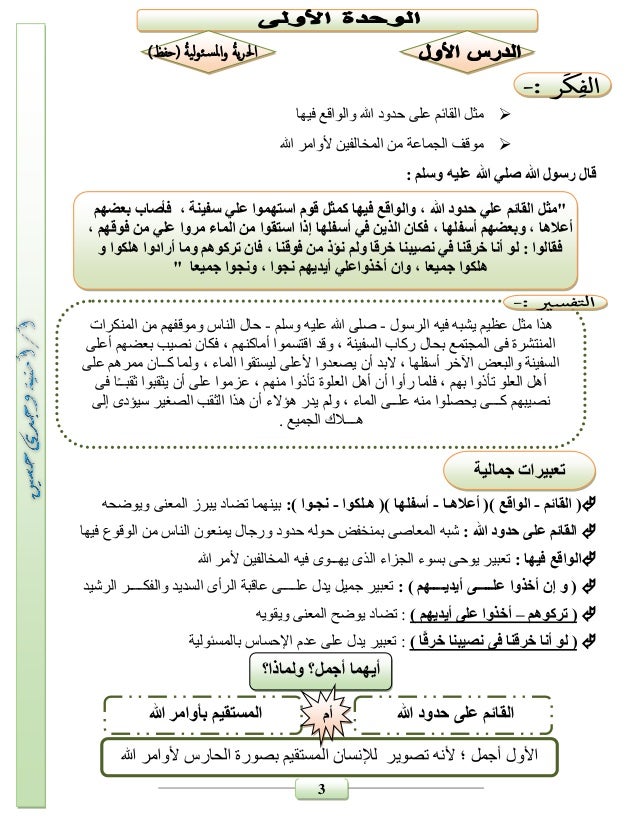 الوحدة الأولى
الدرس الأول
الحرية والمسئولية (حفظ)
الفِكَر :-
مثل القائم على حدود الله والواقع فيها
موقف الجماعة من المخالفين لأوامر الله
قال رسول الله صلي الله عليه وسلم :
"مثل القائم علي حدود الله ، والواقع فيها كمثل قوم استهموا علي سفينة ، فأصاب بعضهم
أعلاها ، وبعضهم أسفلها ، فكان الذين في أسفلها إذا استقوا من الماء مروا علي من فوقهم ،
فقالوا : لو أنا خرقنا في نصيبنا خرقا ولم نؤذ من فوقنا ، فان تركوهم وما أرادوا هلكوا و
هلكوا جميعا ، وان أخذواعلي أيديهم نجوا ، ونجوا جميعا "
التفسير :-
هذا مثل عظيم يشبه فيه الرسول - صلى الله عليه وسلم - حال الناس وموقفهم من المنكرات
المنتشرة فى المجتمع بحال ركاب السفينة ، وقد اقتسموا أماكنهم ، فكان نصيب بعضهم أعلى
السفينة والبعض الآخر أسفلها ، لابد أن يصعدوا لأعلى ليستقوا الماء ، ولما كــان ممرهم على
أهل العلو تأذوا بهم ، فلما رأوا أن أهل العلوة تأذوا منهم ، عزموا على أن يثقبوا ثقبـًا فى
نصيبهم كـــى يحصلوا منه علــى الماء ، ولم يدر هؤلاء أن هذا الثقب الصغير سيؤدى إلى
هـــلاك الجميع .
تعبيرات جمالية
( القائم - الواقع )( أعلاهـا - أسفلها )( هـلكوا - نجـوا ): بينهما تضاد يبرز المعنى ويوضحه
القائم على حدود الله : شبه المعاصى بمنخفض حوله حدود ورجال يمنعون الناس من الوقوع فيها
الواقع فيها : تعبير يوحى بسوء الجزاء الذى يهــوى فيه المخالفين لأمر الله
( و إن أخذوا علــــى أيديــــهم ) : تعبير جميل يدل علــــى عاقبة الرأى السديد والفكـــر الرشيد
( تركوهم – أخذوا على أيديهم ) : تضاد يوضح المعنى ويقويه
( لو أنا خرقنا في نصيبنا خرقًا ) : تعبير يدل على عدم الإحساس بالمسئولية
أيهما أجمل؟ ولماذا؟
القائم على حدود الله
أم
المستقيم بأوامر الله
الأول أجمل ؛ لأنه تصوير للإنسان المستقيم بصورة الحارس لأوامر الله
3